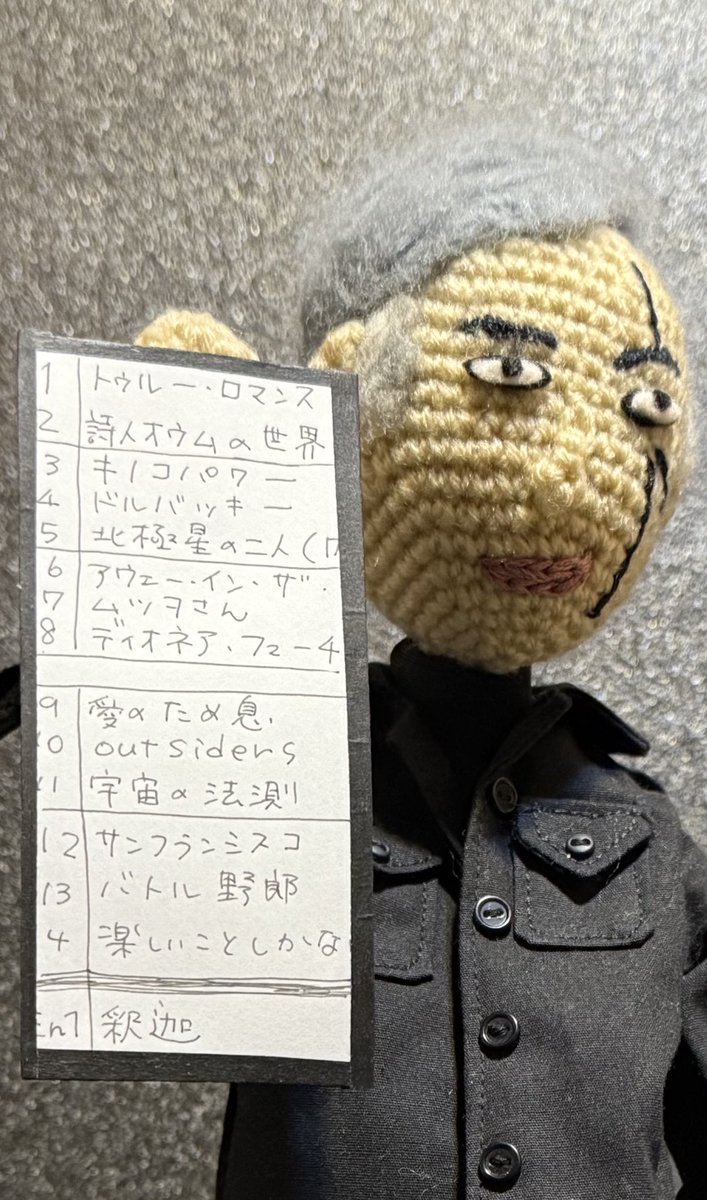 1 トゥルー・ロマンス
2 詩人オウムの世界
3 キノコパワー
4 ドルバッキー
5 北極星の二人(
6 アウェー・イン・ザ・
7 ムツオさん
8 ディオネア・フューチ
9 愛のため息
10 outsiders
11 宇宙の法則
12 サンフランシスコ
13 バトル野郎
4 楽しいことしかな
En1 釈迦